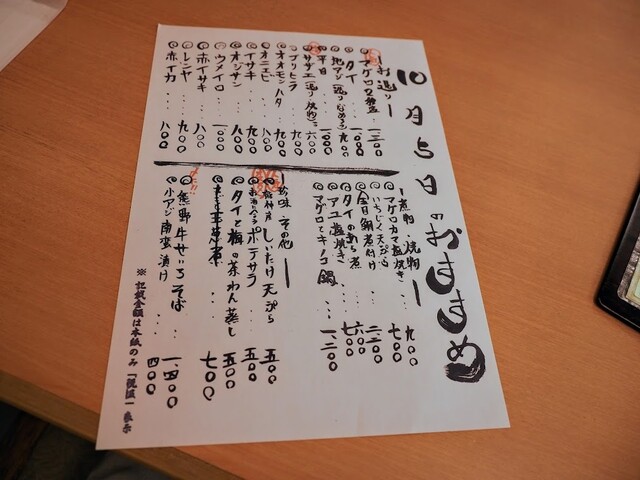 10月5日のおすすめ
ーお造りー
マグロ2種盛 ・・ 一三〇〇
タイ ・・・ 一〇〇〇
地アジ(造り なめろう) 九〇〇
平目 ・・・ 一〇〇〇
サザエ(造り・焼物) 六〇〇
ブリヒラ ・・・ 九〇〇
オオモンハタ ・・ 九〇〇
オニエビ ・・ 八〇〇
イサキ ・・・ 九〇〇
オジサン ・・・ 八〇〇
ウメイロ ・・・ 一〇〇〇
赤イサキ ・・・ 八〇〇
レンヤ ・・・ 九〇〇
赤イカ ・・・ 八〇〇
ー煮物・焼物ー
マグロカマ塩焼き ・・ 九〇〇
いちじく天ぷら ・・ 七〇〇
金目鯛煮付け ・・ 二二〇〇
タイのあら煮 ・・ 六〇〇
アユ塩焼き ・・ 七〇〇
マグロとキノコ鍋 ・・ 一、二〇〇
ー珍味・その他ー
しいたけ天ぷら 五〇〇
ポテサラ 五〇〇
タイと梅の茶わん蒸し 五〇〇
七〇〇
熊野牛せいろそば ・・ 一、四〇〇
小アジ南蛮漬け ・・・ 四〇〇
※記載金額は本紙のみ「税抜」表示